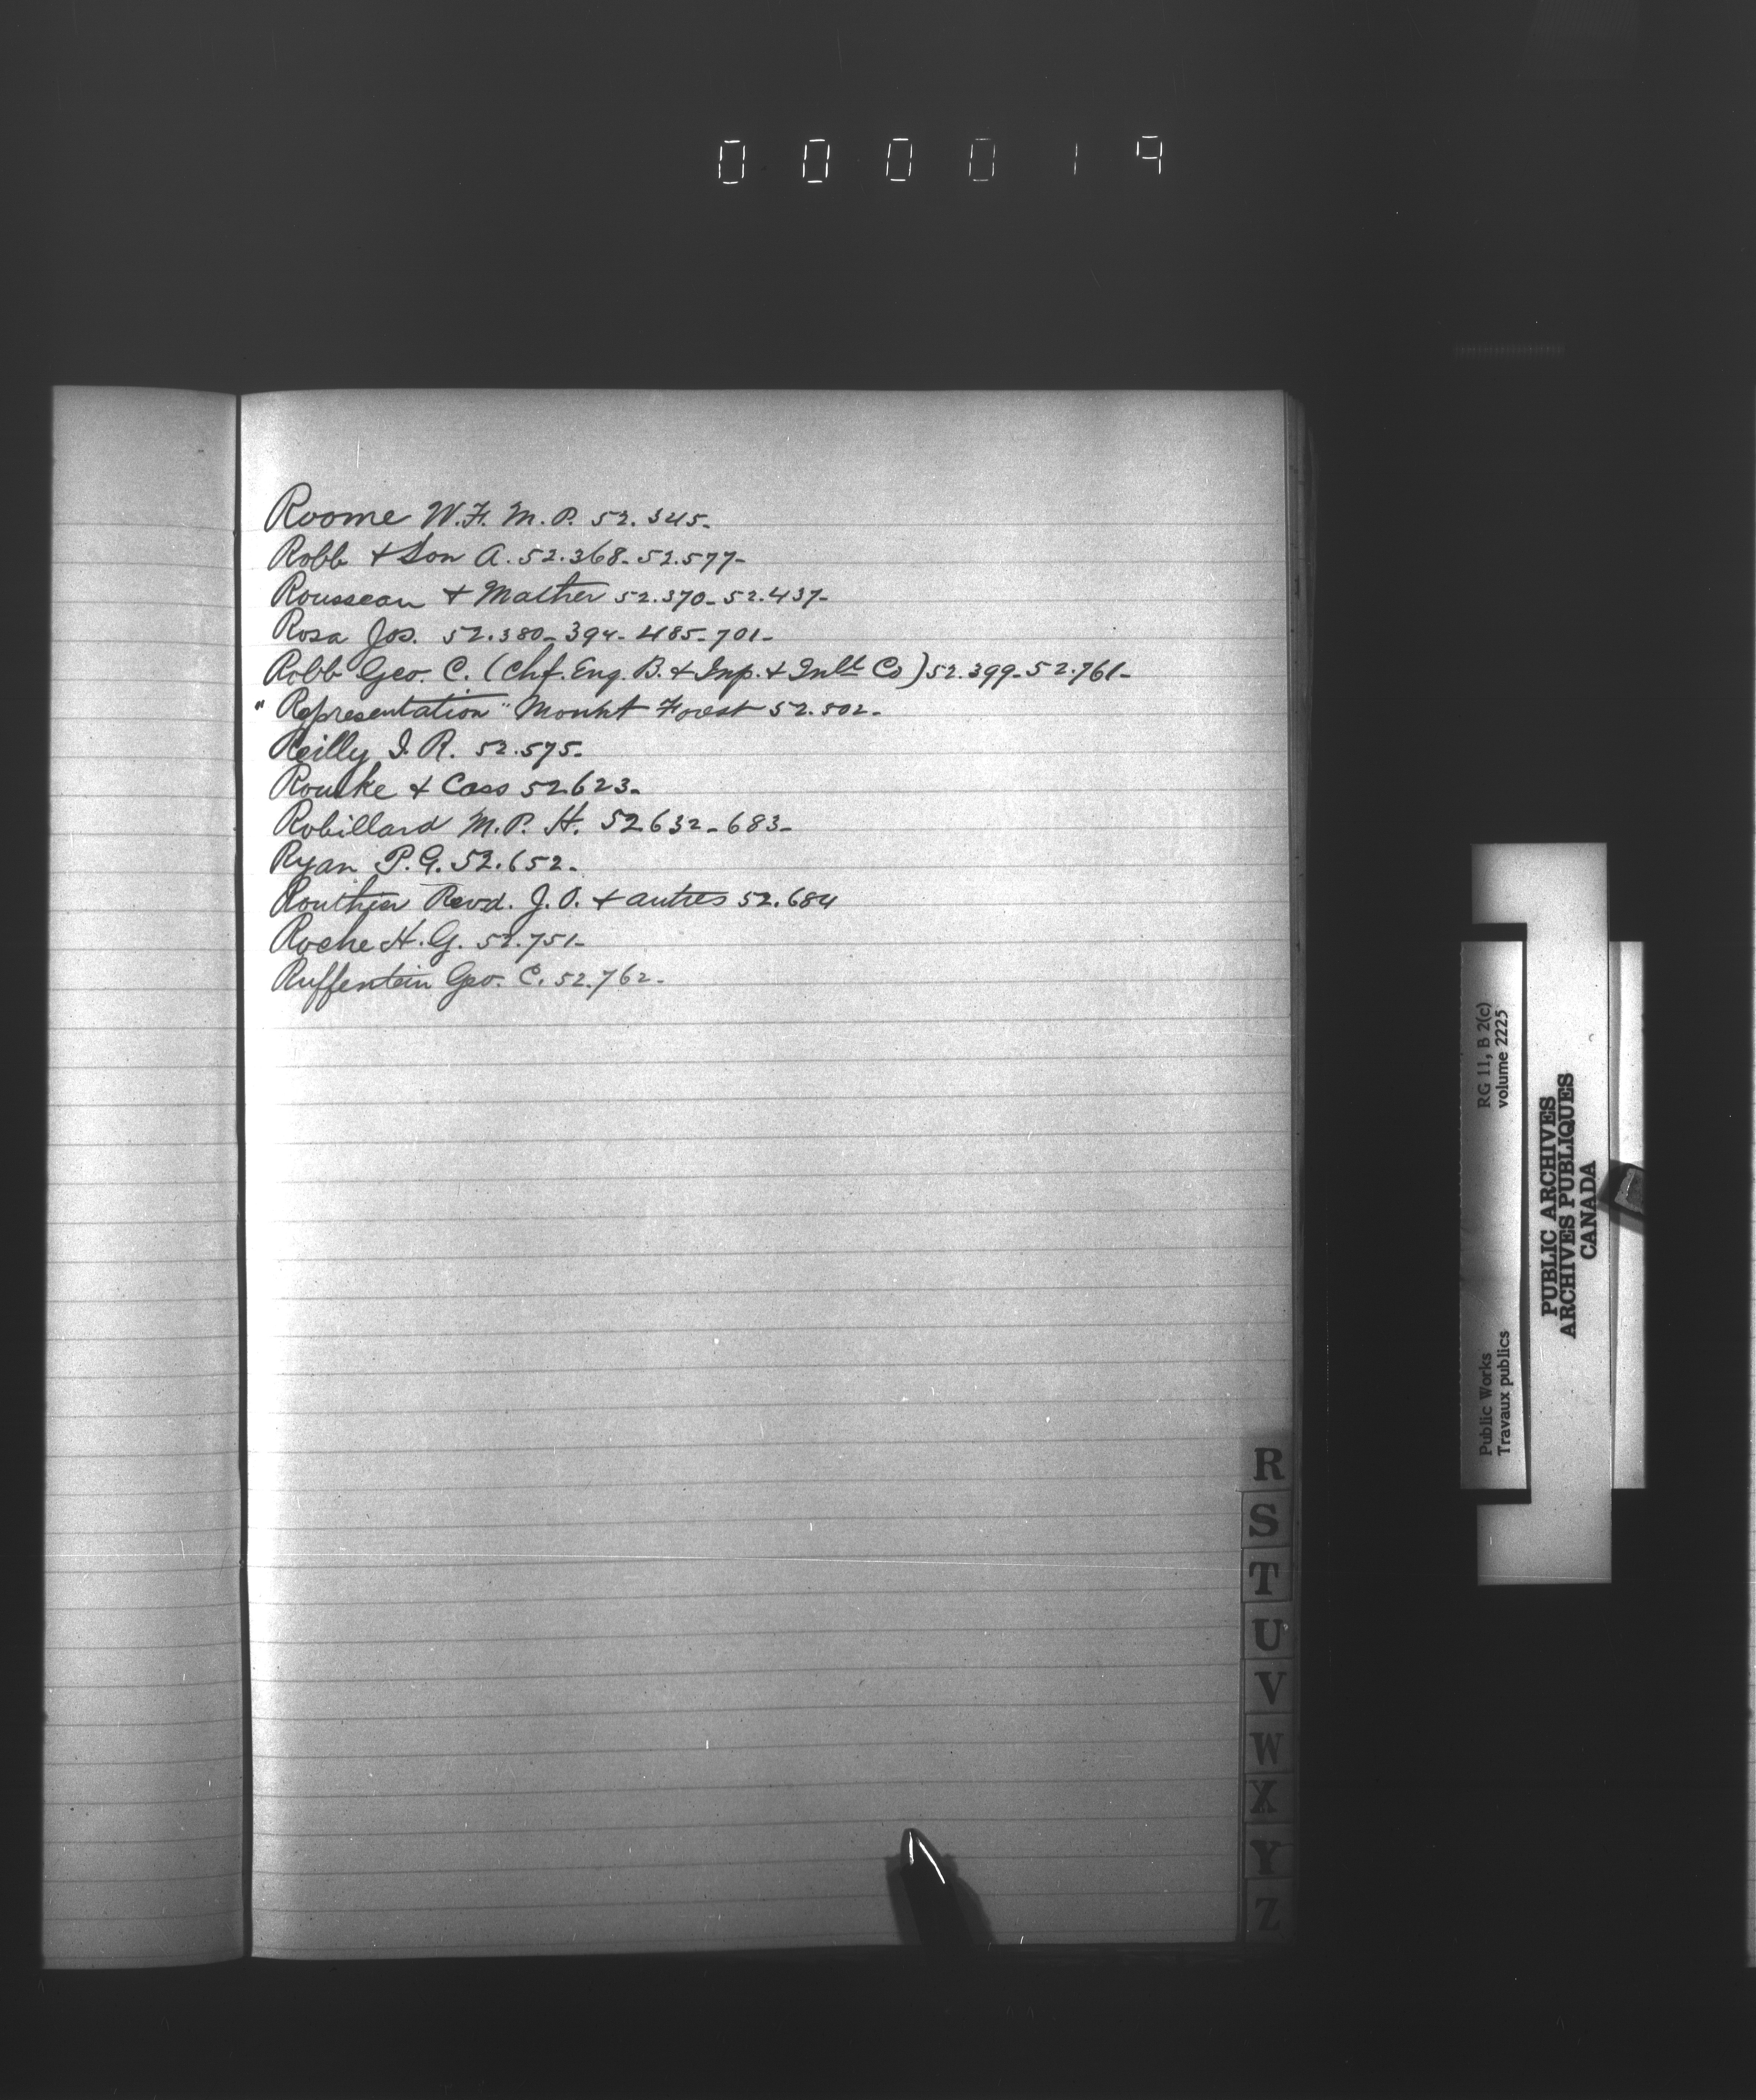 000019
Roome W.F. M.P. 52.345-
Robb & Son A. 52.368-52.577-
Rousseau & Mather 52.370-52.437-
Rosa Jos. 52.380-394-485-701-
Robb Geo. C. (Chf. Eng. B. & Insp. & Co) 52.399-52.761-
"Representation" Mount Forest 52.502-
Reilly I. R. 52.575-
Rourke & Cass 52623-
Robillard M.P. H. 52632-683-
Ryan P.G. 52.652-
Routhier Revd. J.O. & autres 52.684
Roche H.G. 52.751-
Ruffentein Geo. C. 52.762-
R
S
T
U
V
W
X
Y
Z
RG 11, B 2(c)
volume 2225
Public Works
Travaux publics
PUBLIC ARCHIVES
ARCHIVES PUBLIQUES
CANADA